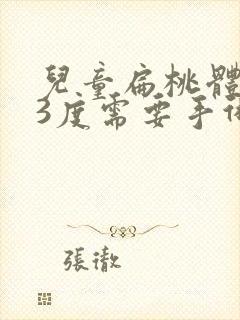 兒童扁桃體
3度需要手術
張澈